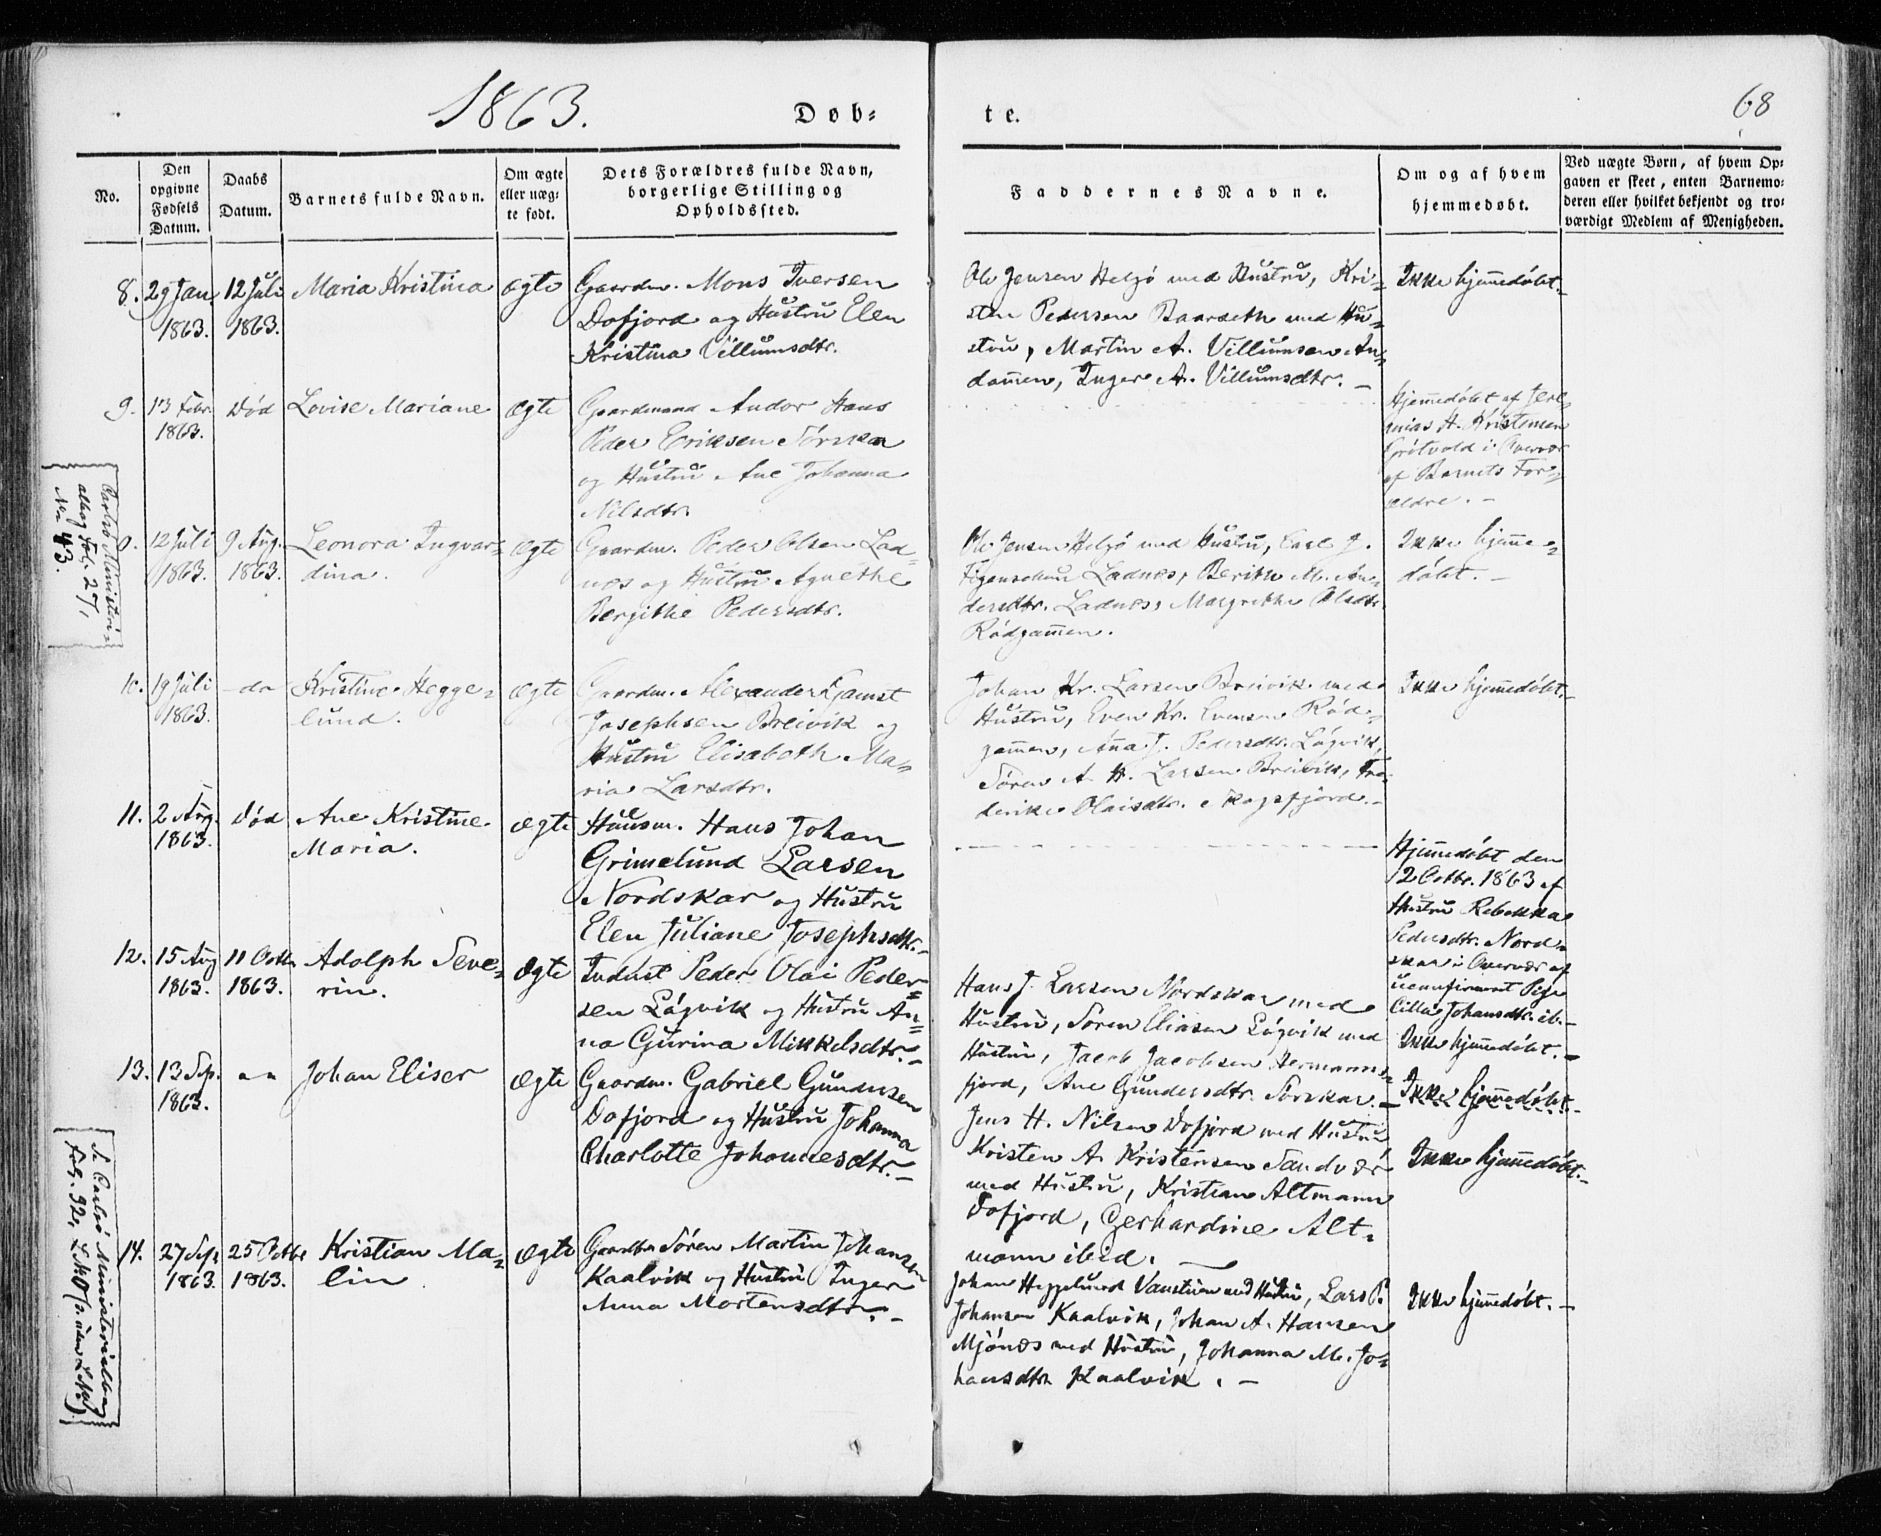 1863.
Døb-
te.
68
No.
Den opgivne Fødsels Datum.
Daabs Datum.
Barnets fulde Navn.
Om ægte eller uæg-te født.
Dets Forældres fulde Navn, borgerlige Stilling og Opholdssted.
Faddernes Navne.
Om og af hvem hjemmedøbt.
Ved uægte Børn, af hvem Op-
gaven er skeet, enten Barnemo-
deren eller hvilket bekjendt og tro-
værdigt Medlem af Menigheden.
8. 29 Jan. 1863.
12 Juli 1863.
Maria Kristina
ægte
Gaardm. Mons Iversen
Dofjord og Hustru Elen
Kristina Villumsdtr.
Ole Jensen Helgø med Hustru, Kri-
sten Pedersen Baarseth med Hu-
stru, Martin A. Villumsen An-
dammen, Inger A. Villumsdtr. -
Ikke hjemmedøbt. -
9. 13 Febr. 1863.
Død
Lovise Mariane
ægte
Gaardmand Andor Hans
Peder Eriksen Sørskar
og Hustru Ane Johanna
Nilsdtr.
Hjemmedøbt af Jere-
mias H. Kristensen
Grøtvold i Overvær
af Barnets For-
ældre. -
Carlsø Ministeri-
albog Fol. 271
No 43.
9. 12 Juli 1863.
9 Aug. 1863.
Leonora Ingvar-
dina.
ægte
Gaardm. Peder Olsen Lad-
næs og Hustru Agnethe
Bergithe Pedersdtr.
Ole Jensen Helgø med Hustru, Carl J.
Figenschou Ladnæs, Berith M. An-
dersdtr. Ladnæs, Margrethe Olsdtr.
Rødgammen.
Ikke hjemme-
døbt. -
10. 19 Juli 1863.
do
Kristine Hegge-
lund.
ægte
Gaardm. Alexander Gamst
Josephsen Breivik og
Hustru Elisabeth Ma-
ria Larsdtr.
Johan Kr. Larsen Breivik med
Hustru, Even Kr. Evensen Rød-
gammen, Anna J. Pedersdtr. Løgvik,
Søren A. H. Larsen Breivik, Fre-
derikke Olaisdtr. Skogsfjord. -
Ikke hjemmedøbt. -
11. 2 Aug. 1863.
Død
Ane Kristine
Maria.
ægte
Huusm. Hans Johan
Grimelund Larsen
Nordskar og Hustru
Elen Juliane Josephsdtr. -
Hjemmedøbt den
12 Octbr. 1863 af
Hustru Rebekka
Pedersdtr. Nord-
skar i Overvær af
uconfirmeret
Johansdtr. ib. -
12. 15 Aug 1863.
11 Octbr 1863.
Adolph Seve-
rin.
ægte
Inderst Peder Olai Peder-
sen Løgvik og Hustru An-
na Gurina Mikkelsdtr. -
Hans J. Larsen Nordskar med
Hustru, Søren Eliasen Løgvik med
Hustru, Jacob Jacobsen Hermanns-
fjord, Ane Gundersdtr. Sørskar. -
Ikke hjemmedøbt. -
Ikke hjemmedøbt. -
13. 13 Sep. 1863.
Johan Eliser
ægte
Gaardm. Gabriel Gundersen
Dofjord og Hustru Johanna
Charlotte Johannesdtr. -
Jens H. Nilsen Dofjord med Hustru
Kristen A. Kristensen Sandvær
med Hustru, Kristian Altmann
Dofjord, Gerhardine Alt-
mann ibid.
Ikke hjemmedøbt. -
Se Carlsø Ministerialbog
Fol. 92, L No
14. 27 Sep. 1863.
25 Octbr 1863.
Kristian Ma-
lin
ægte
Gaardbr. Søren Martin Johansen
Kaalvik og Hustru Inger
Anna Mortensdtr. -
Johan Heggelund Vanstuen med Hustru, Lars P.
Johansen Kaalvik, Johan A. Hansen
Mjønæs med Hustru, Johanna M. Jo-
hansdtr. Kaalvik. -
Ikke hjemmedøbt. -